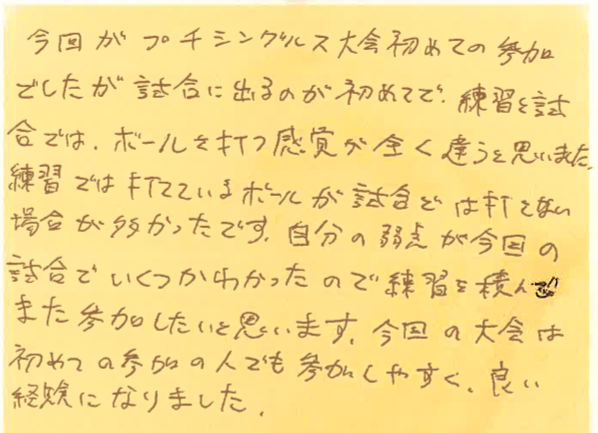 今回がプチシングルス大会初めての参加
でしたが試合に出るのが初めてで、練習と試
合では、ボールを打つ感覚が全く違うと思いました。
練習では打てているボールが試合では打てない
場合が多かったです。自分の弱点が今回の
試合でいくつかわかったので練習を積んで
また参加したいと思います。今回の大会は
初めての参加の人でも参加しやすく、良い
経験になりました。